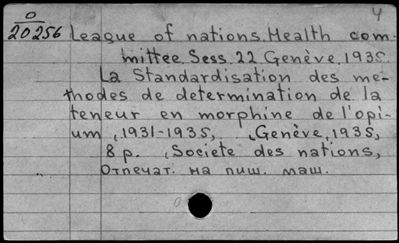 4
0
20256 League of nations. Health com-
mittee. Sess. 22. Genève, 1935.
La Standardisation des me-
thodes de determination de la
teneur en morphine de l'opi-
um, 1931-1935, Genève, 1935,
8 p. Societe des nations,
Отпечат. на пиш. маш.